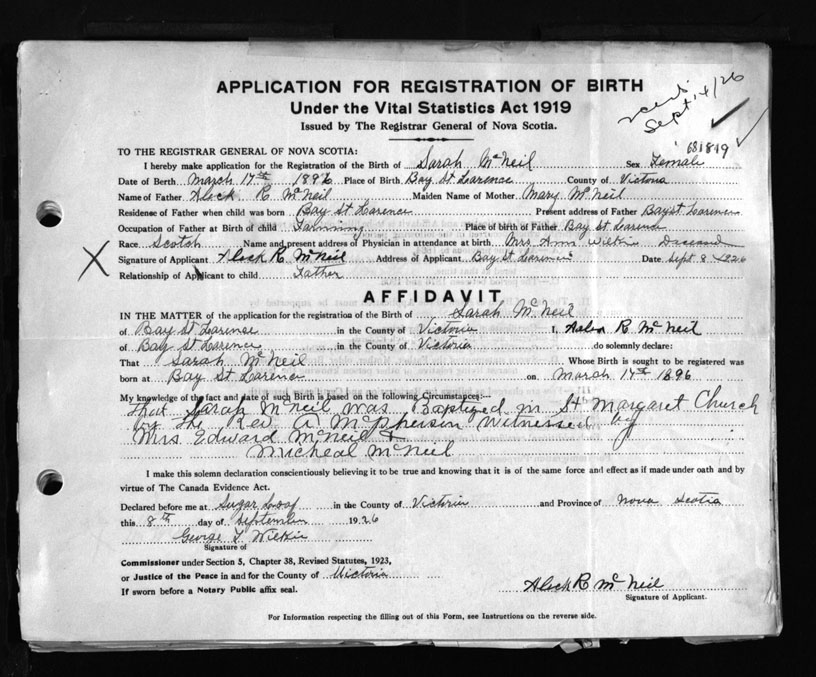 APPLICATION FOR REGISTRATION OF BIRTH
Under the Vital Statistics Act 1919
Issued by The Registrar General of Nova Scotia.
Sept. 14/26
681819
TO THE REGISTRAR GENERAL OF NOVA SCOTIA:
I hereby make application for the Registration of the Birth of Sarah McNeil Sex Female
Date of Birth March 17th 1896 Place of Birth Bay St Larence County of Victoria
Name of Father Aleck R McNeil Maiden Name of Mother Mary McNeil
Residence of Father when child was born Bay St Larence Present address of Father Bay St Larence
Occupation of Father at Birth of child Farmning Place of birth of Father Bay St Larence
Race Scotch Name and present address of Physician in attendance at birth Mrs Ann Wilkie Deceased
X Signature of Applicant Aleck R McNeil Address of Applicant Bay St Larence Date Sept 8 1926
Relationship of Applicant to child Father
AFFIDAVIT
IN THE MATTER of the application for the registration of the Birth of Sarah McNeil
of Bay St Larence in the County of Victoria I, R McNeil
of Bay St Larence in the County of Victoria do solemnly declare:
That Sarah McNeil Whose Birth is sought to be registered was
born at Bay St Larence on March 17th 1896
My knowledge of the fact and date of such Birth is based on the following Circumstances:—
that Sarah McNeil was Baptized in St Margaret Church
by the Rev. A McPherson Witnessed by
Mrs Edward McNeil &
Micheal McNeil
I make this solemn declaration conscientiously believing it to be true and knowing that it is of the same force and effect as if made under oath and by
virtue of The Canada Evidence Act.
Declared before me at Sugar Loaf in the County of Victoria and Province of Nova Scotia
this 8th day of September 1926
George T Wilkie
Signature of
Commissioner under Section 5, Chapter 38, Revised Statutes, 1923,
or Justice of the Peace in and for the County of Victoria
If sworn before a Notary Public affix seal.
Aleck R McNeil
Signature of Applicant.
For Information respecting the filling out of this Form, see Instructions on the reverse side.